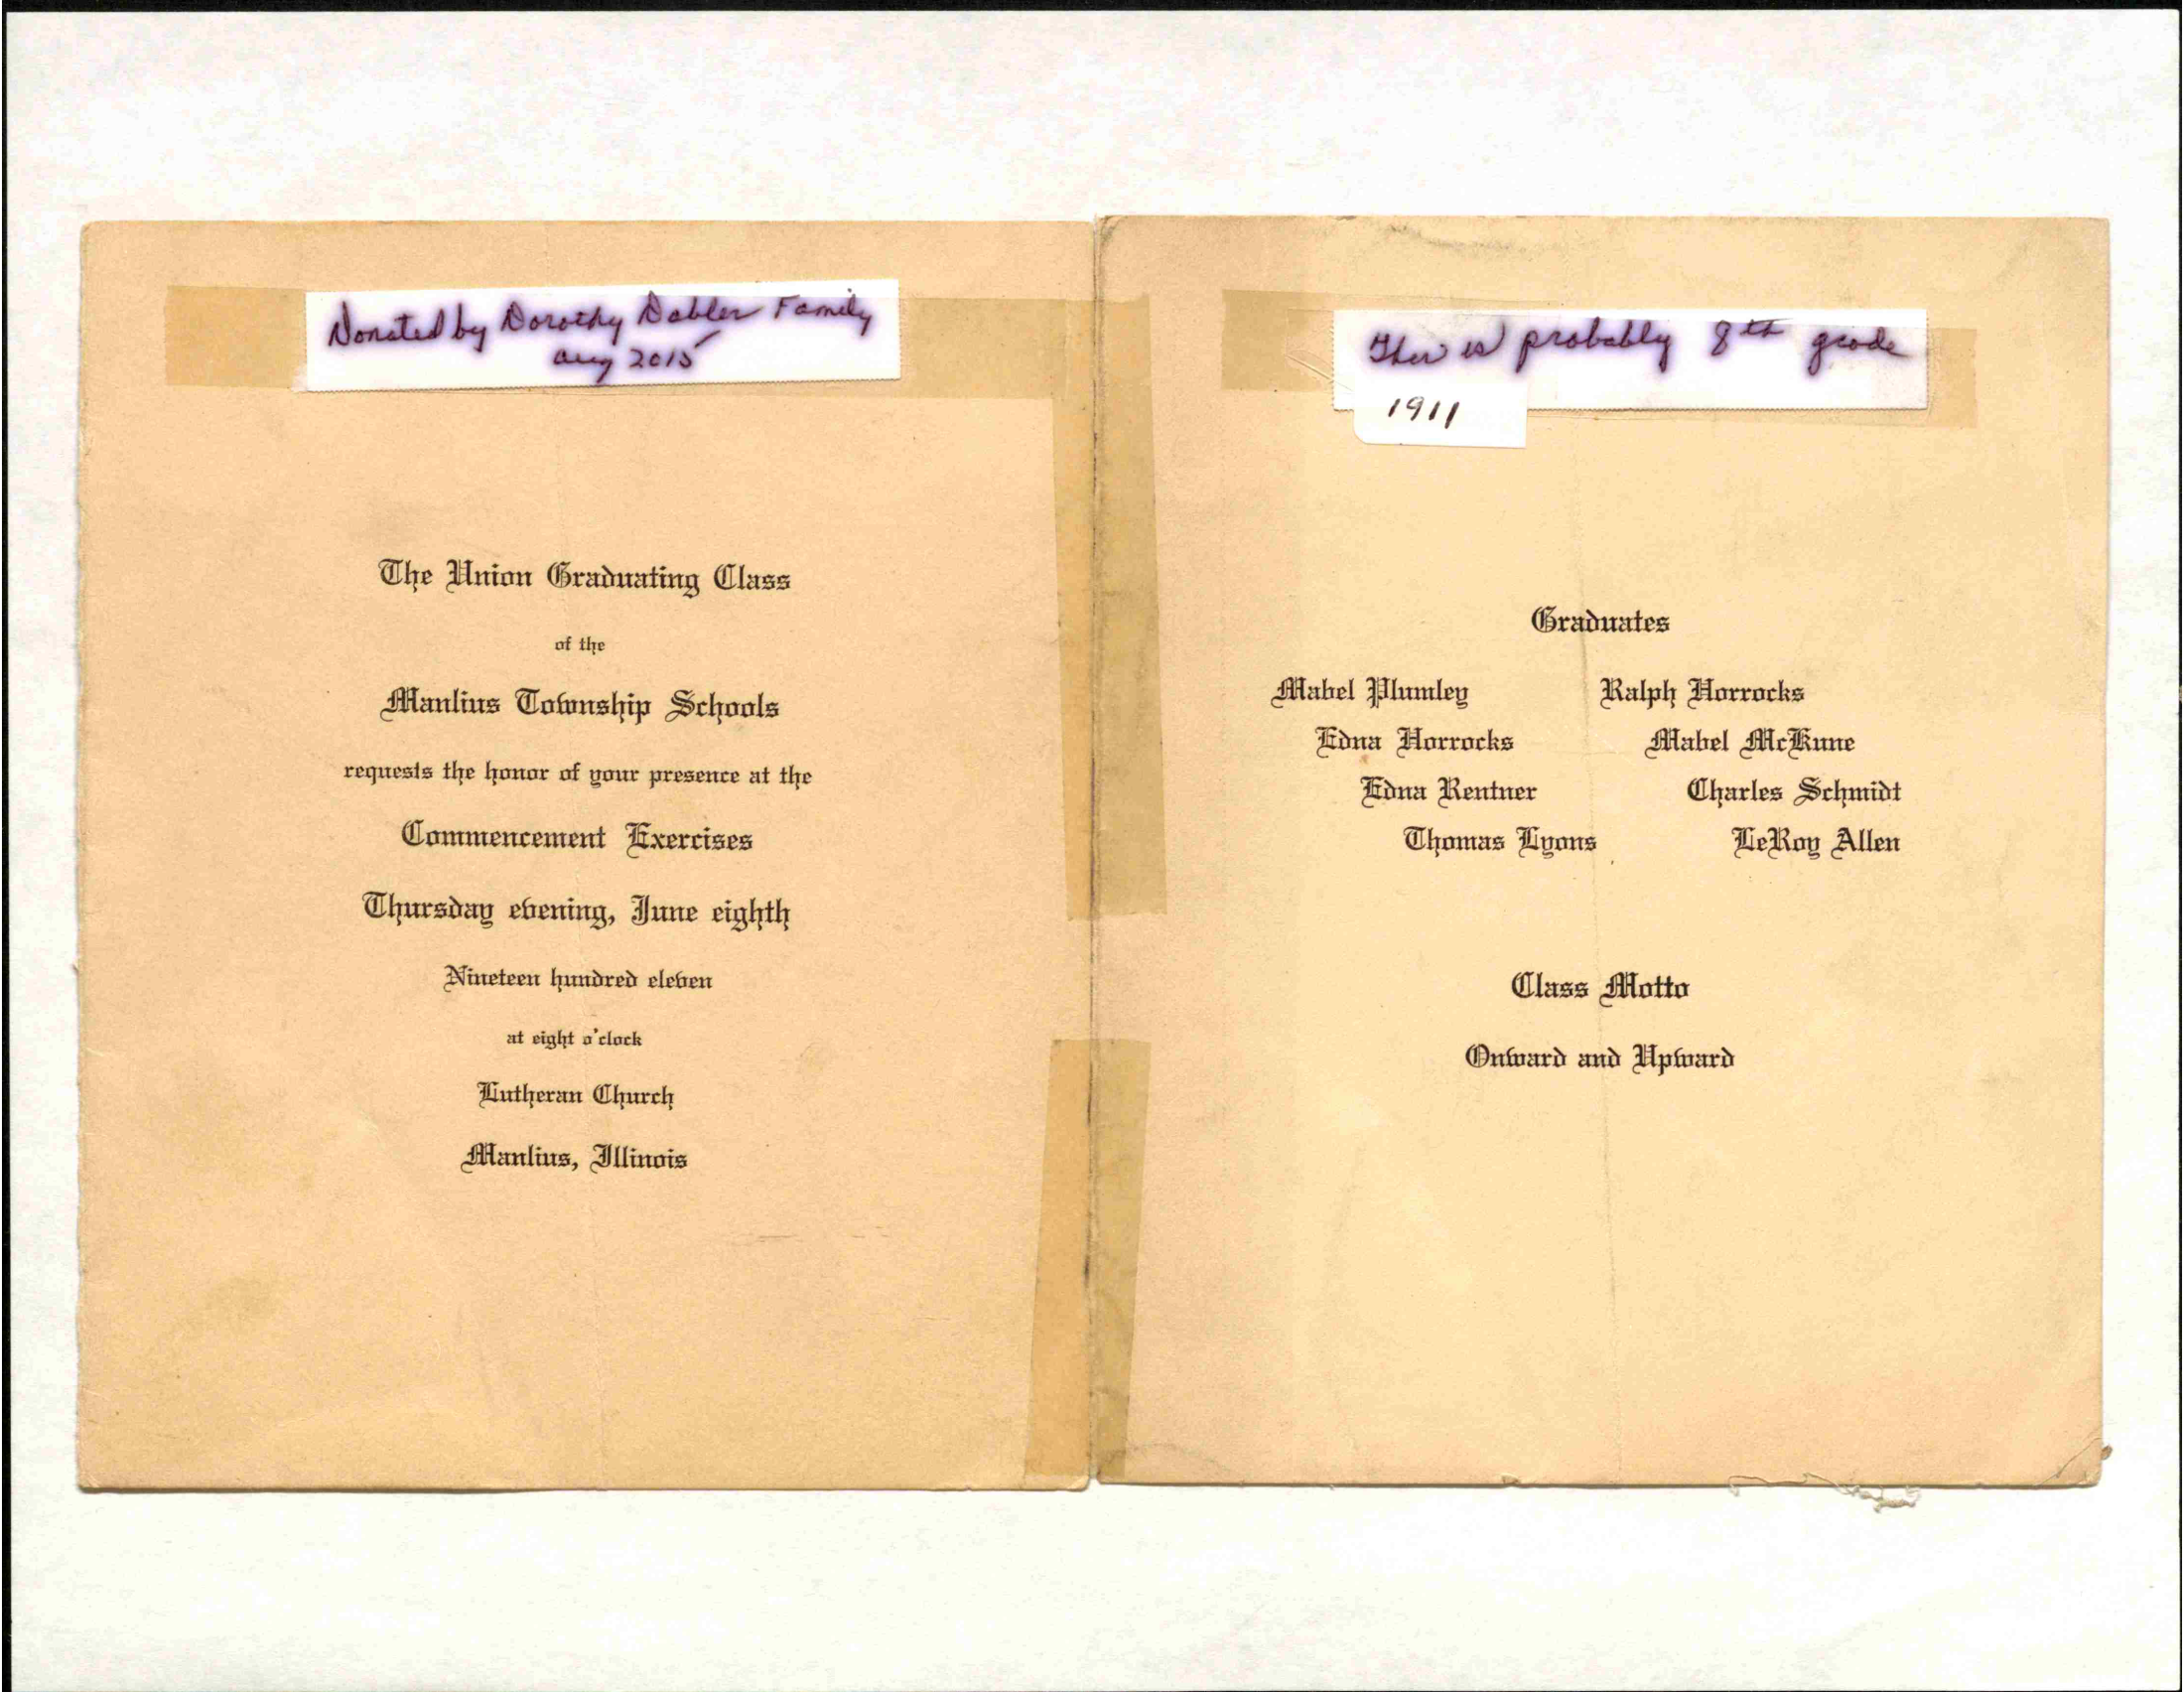 Donated by Dorothy Dabler Family
Aug 2015
The Union Graduating Class
of the
Manlius Township Schools
requests the honor of your presence at the
Commencement Exercises
Thursday evening, June eighth
Nineteen hundred eleven
at eight o'clock
Lutheran Church
Manlius, Illinois
This is probably 8th grade
1911
Graduates
Mabel Plumley Ralph Horrocks
Edna Horrocks Mabel McKune
Edna Rentner Charles Schmidt
Thomas Lyons LeRoy Allen
Class Motto
Onward and Upward